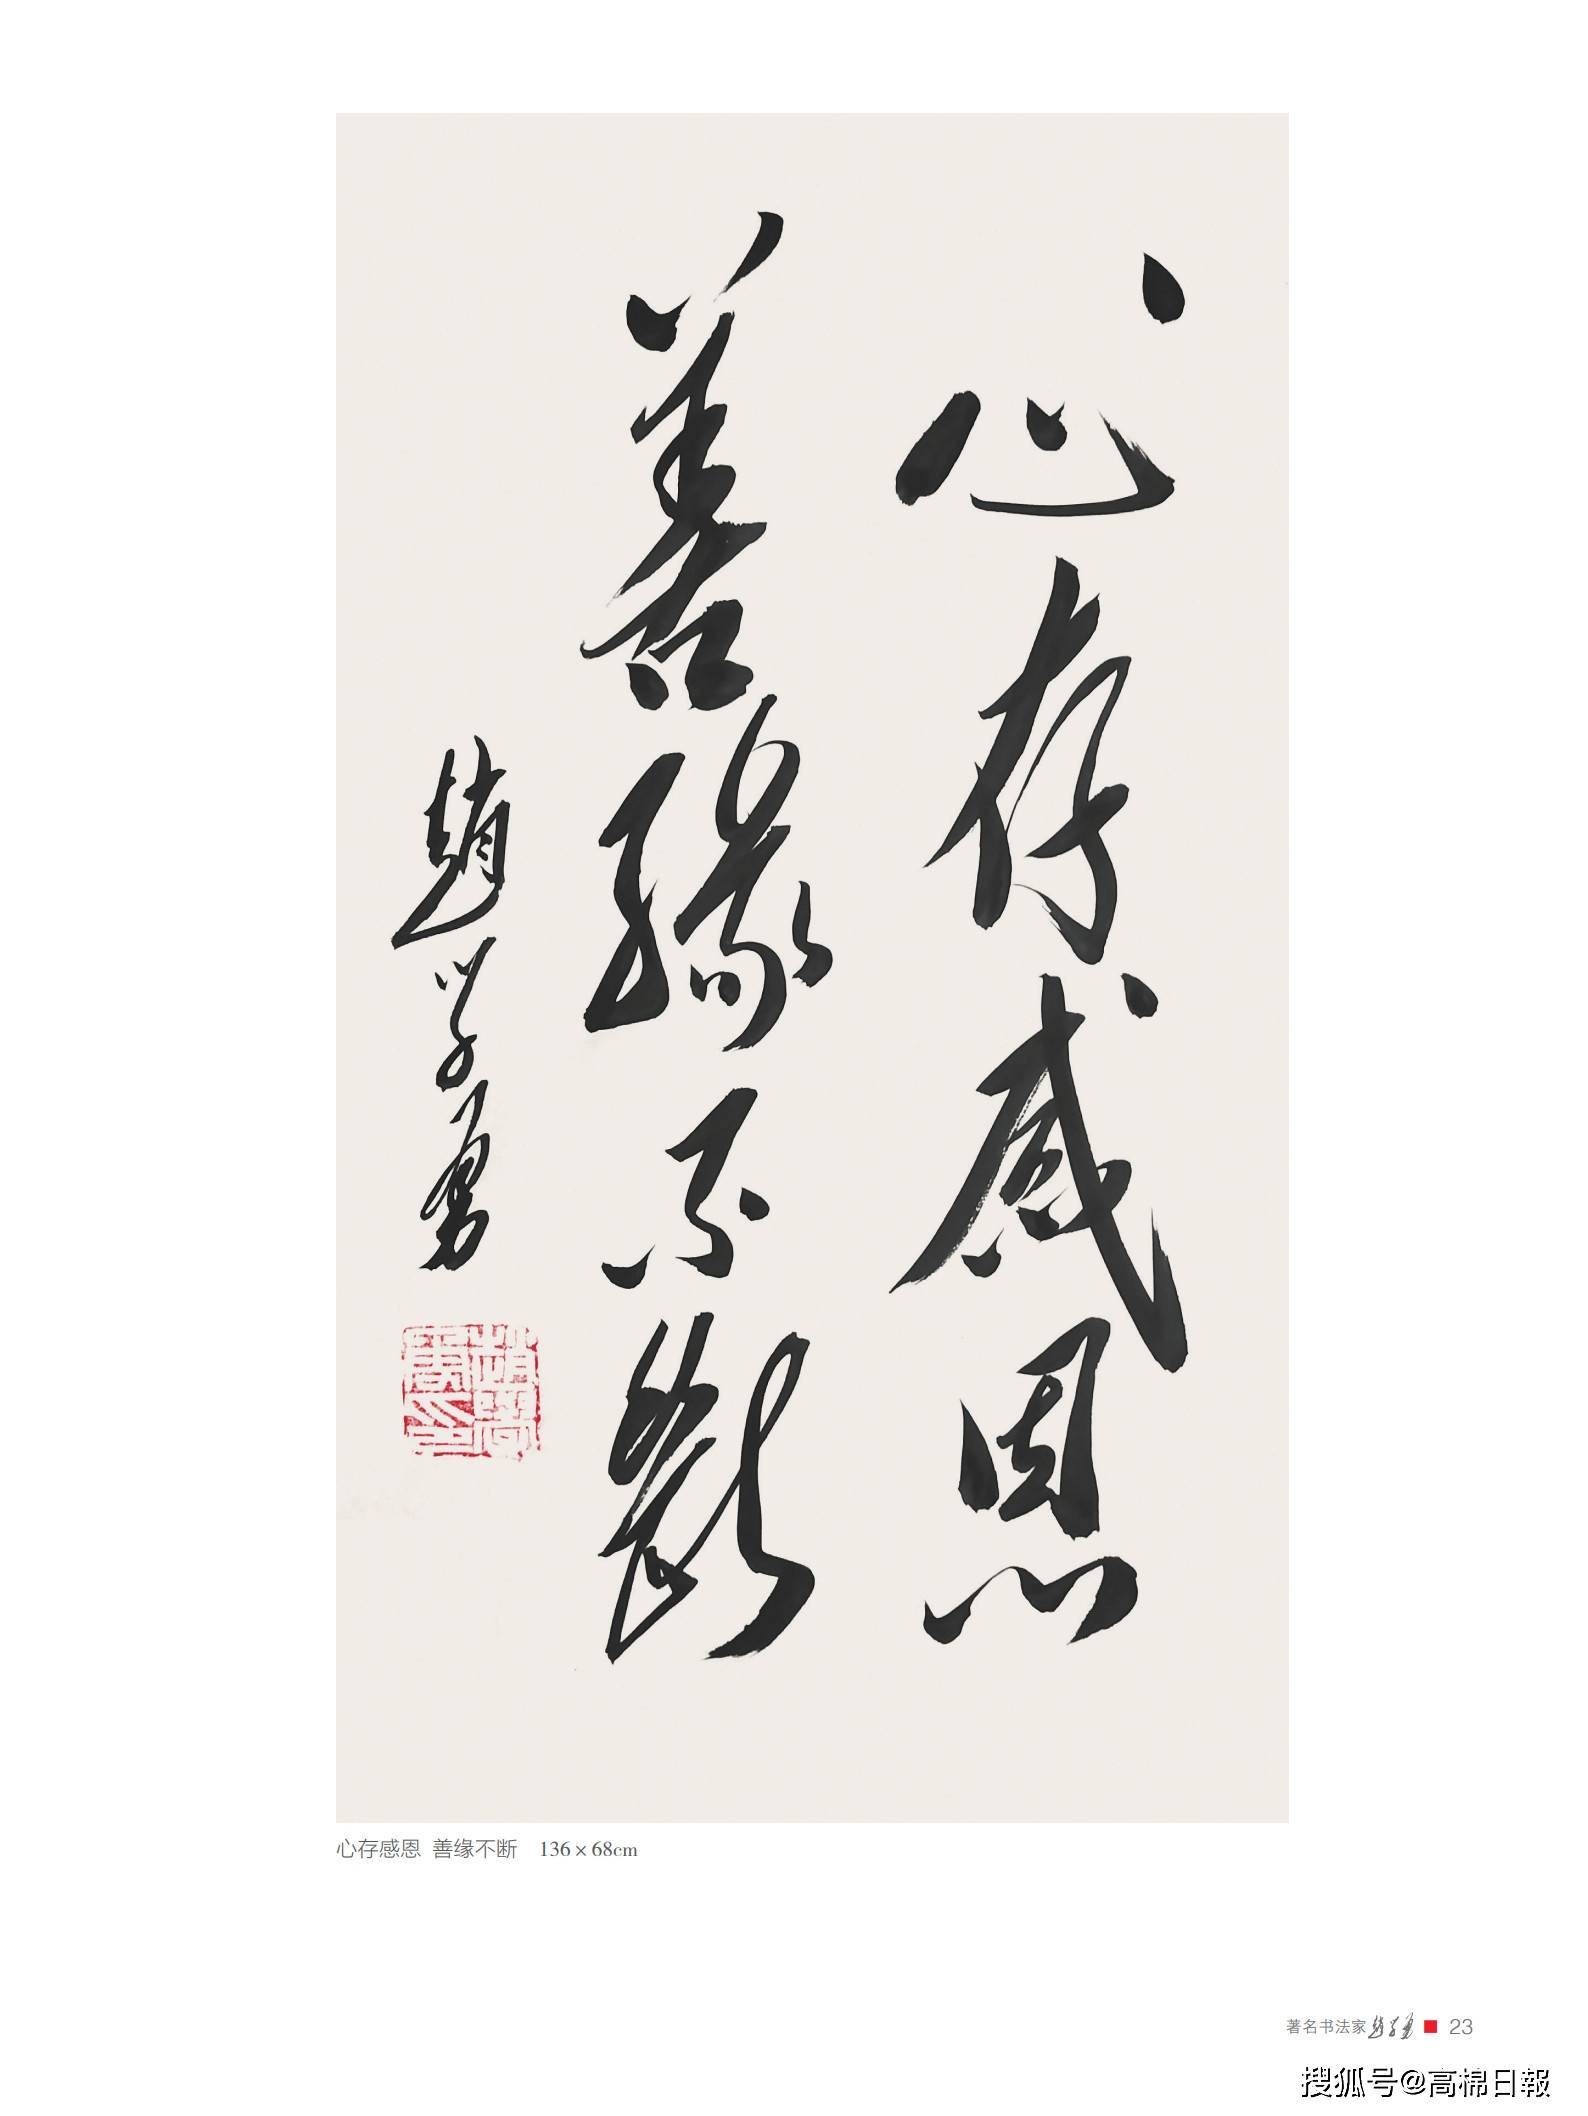 心存感恩
善緣不斷
趙学勇
心存感恩 善缘不断 136×68cm
著名书法家趙学勇 23
搜狐号@高棉日報